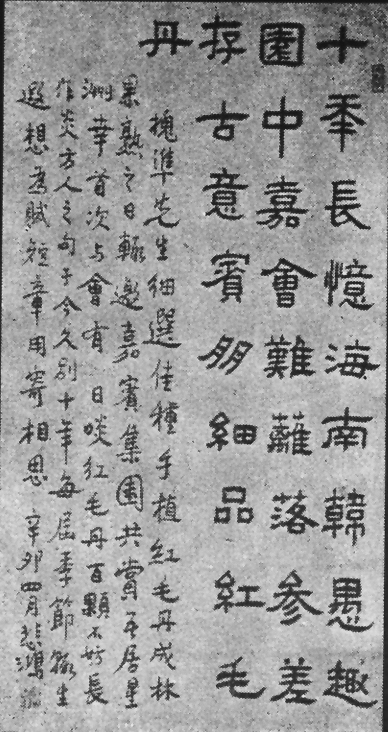 十年長憶海南韓愚趣
園中嘉會難蘺落參差
存古意賓朋細品紅毛
丹
槐準先生細選佳種手植紅毛丹成林
果熟之日輒邀嘉賓集園共賞吾居星
洲幸首次与會有日啖紅毛丹百顆不妨長
作炎方人之句于今久別十年每屆季節輒生
遐想為賦短章用寄相思 辛卯四月悲鴻